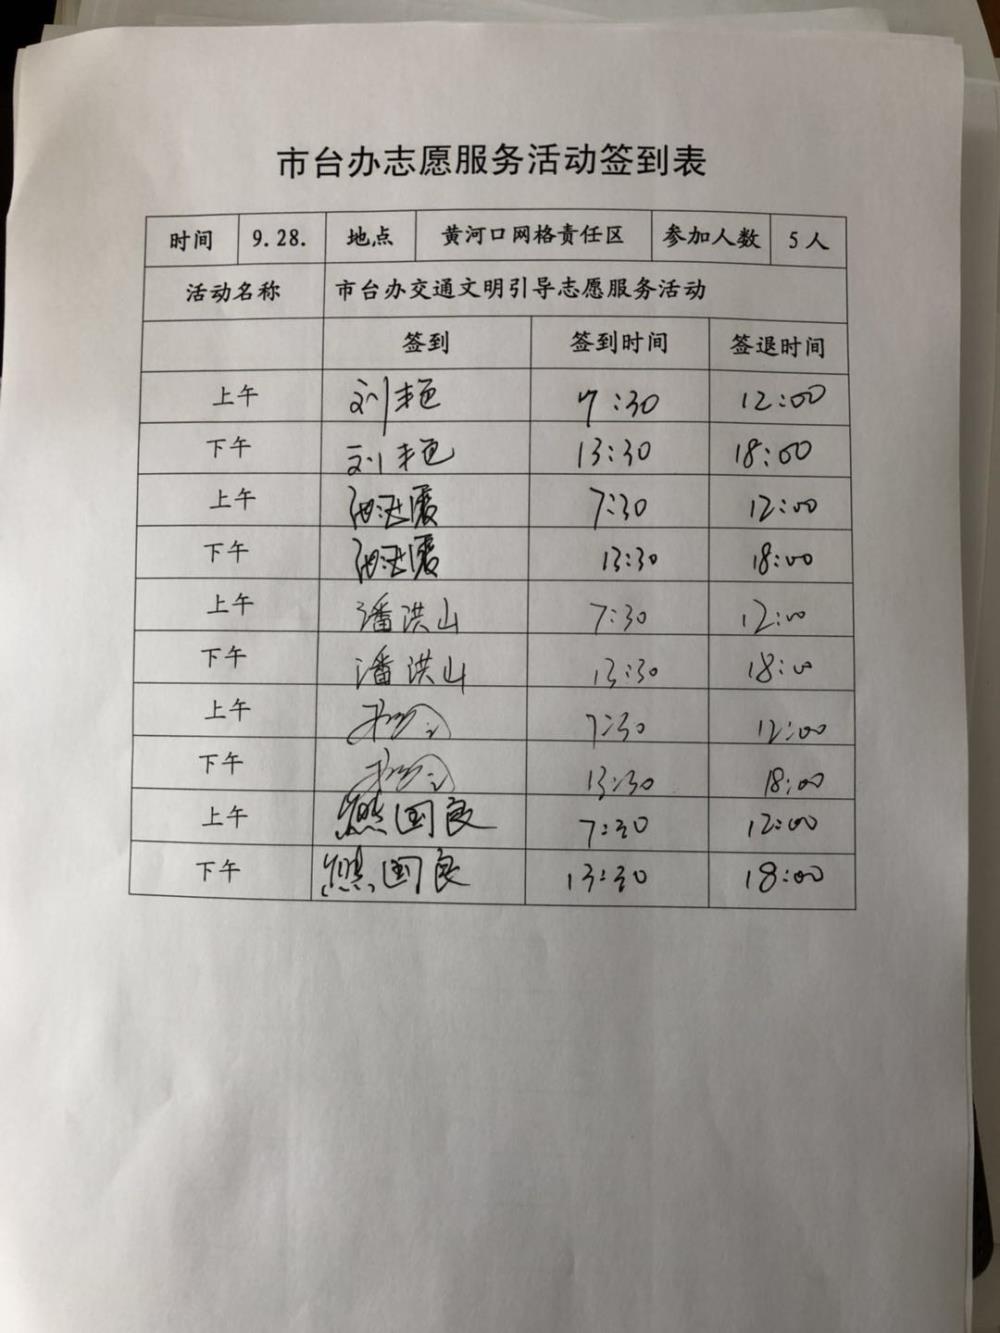 市台办志愿服务活动签到表
时间 9.28. 地点 黄河口网格责任区 参加人数 5人
活动名称 市台办交通文明引导志愿服务活动
签到 签到时间 签退时间
上午 刘艳 7:30 12:00
下午 刘艳 13:30 18:00
上午 7:30 12:00
下午 13:30 18:00
上午 潘洪山 7:30 12:00
下午 潘洪山 13:30 18:00
上午 7:30 12:00
下午 13:30 18:00
上午 熊国良 7:30 12:00
下午 熊国良 13:30 18:00